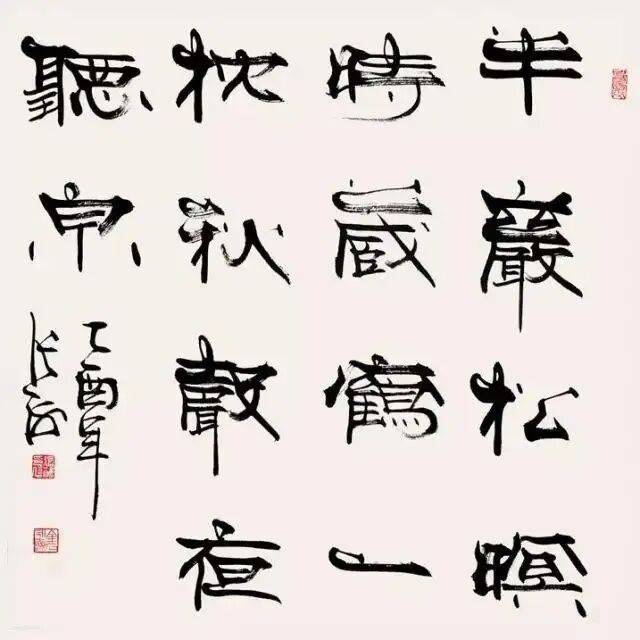 半巖松暝
時藏鶴一
枕秋聲夜
聽泉
乙酉年
张海